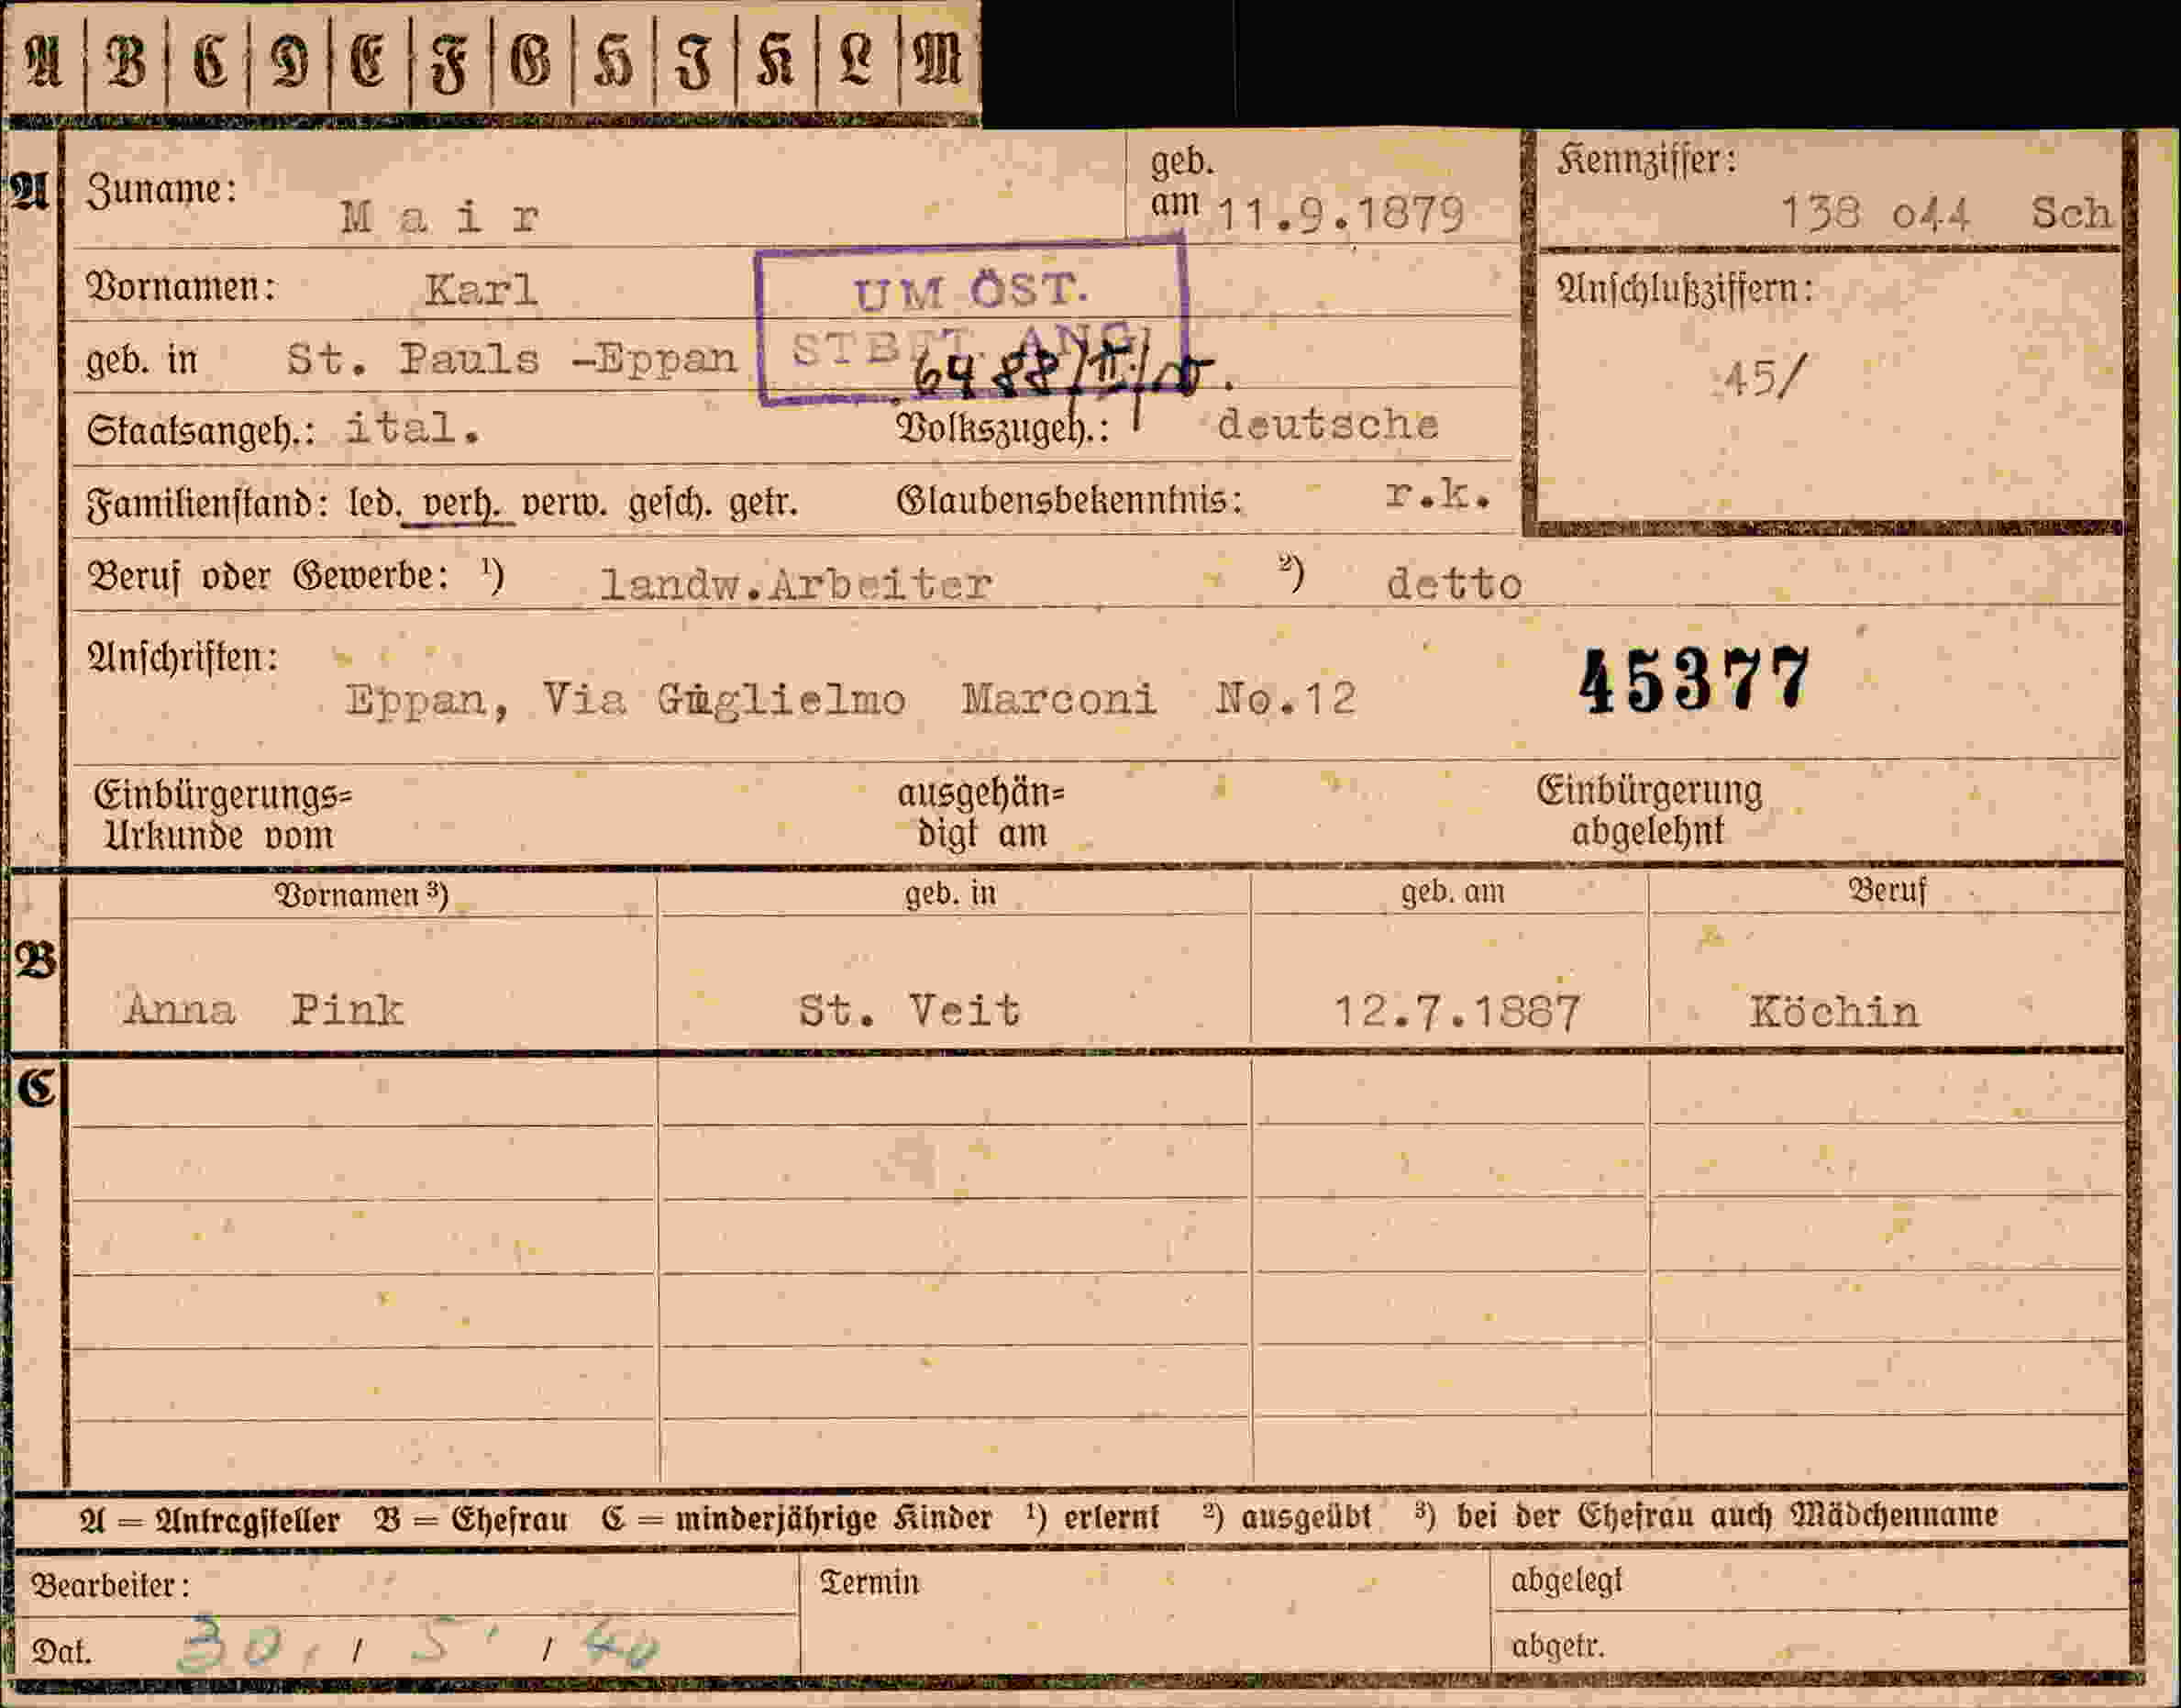 A B C D E F G H I K L M
A Zuname: Mair geb. am 11.9.1879 Kennziffer: 138 o44 Sch
Vornamen: Karl UM ÖST. Anschlußziffern:
geb. in St. Pauls -Eppan STBFT. ANG. 6488/II/ 45/
Staatsangeh.: ital. Volkszugeh.: deutsche
Familienstand: led. verh. verw. gesch. getr. Glaubensbekenntnis: r.k.
Beruf oder Gewerbe: ¹) landw.Arbeiter ²) detto
Anschriften: 45377
Eppan, Via Guglielmo Marconi No.12
Einbürgerungs= ausgehän= Einbürgerung
Urkunde vom digt am abgelehnt
Vornamen ³) geb. in geb. am Beruf
B
Anna Pink St. Veit 12.7.1887 Köchin
C
A = Antragsteller B = Ehefrau C = minderjährige Kinder ¹) erlernt ²) ausgeübt ³) bei der Ehefrau auch Mädchenname
Bearbeiter: Termin abgelegt
Dat. 30. / 5. / 40 abgetr.